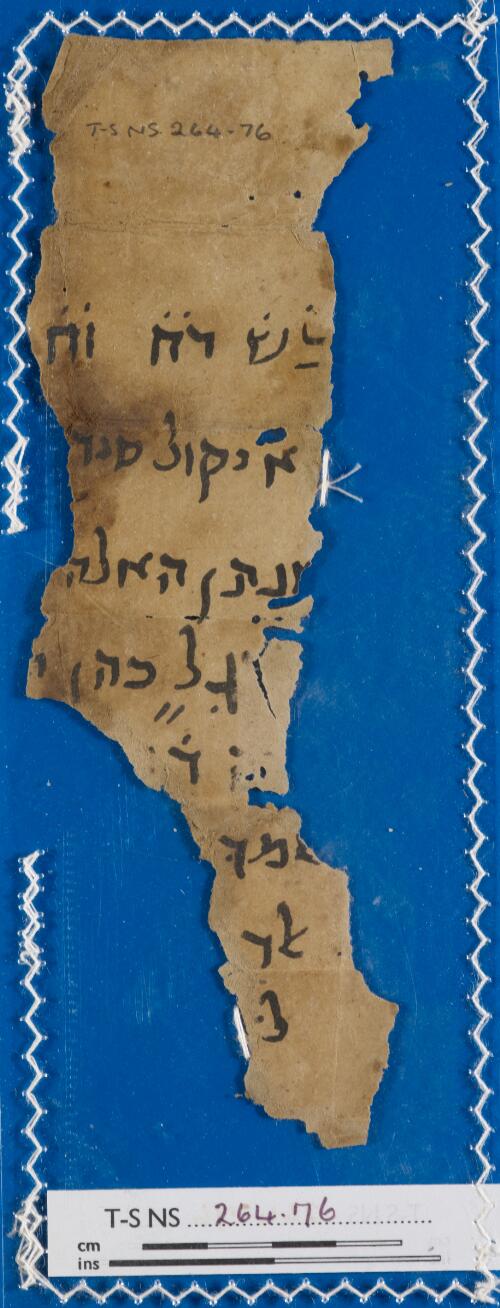 T-S NS 264-76
רח וח
א יקול סנד
ונתן האלה
כהן י
ד
מך
אר
ל
T-S NS 264.76
cm
ins